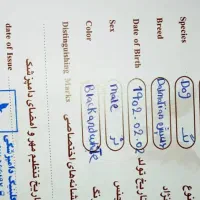 Species
Dog
نوع
Breed
Dalmatian
نژاد
Date of Birth
1902.02.02
تاریخ تولد
Sex
male
نر
جنس
Color
Black and white
رنگ
Distinguishing Marks
نشانه‌های اختصاصی
date of Issue
تاریخ تنظیم مهر و امضای دامپزشک